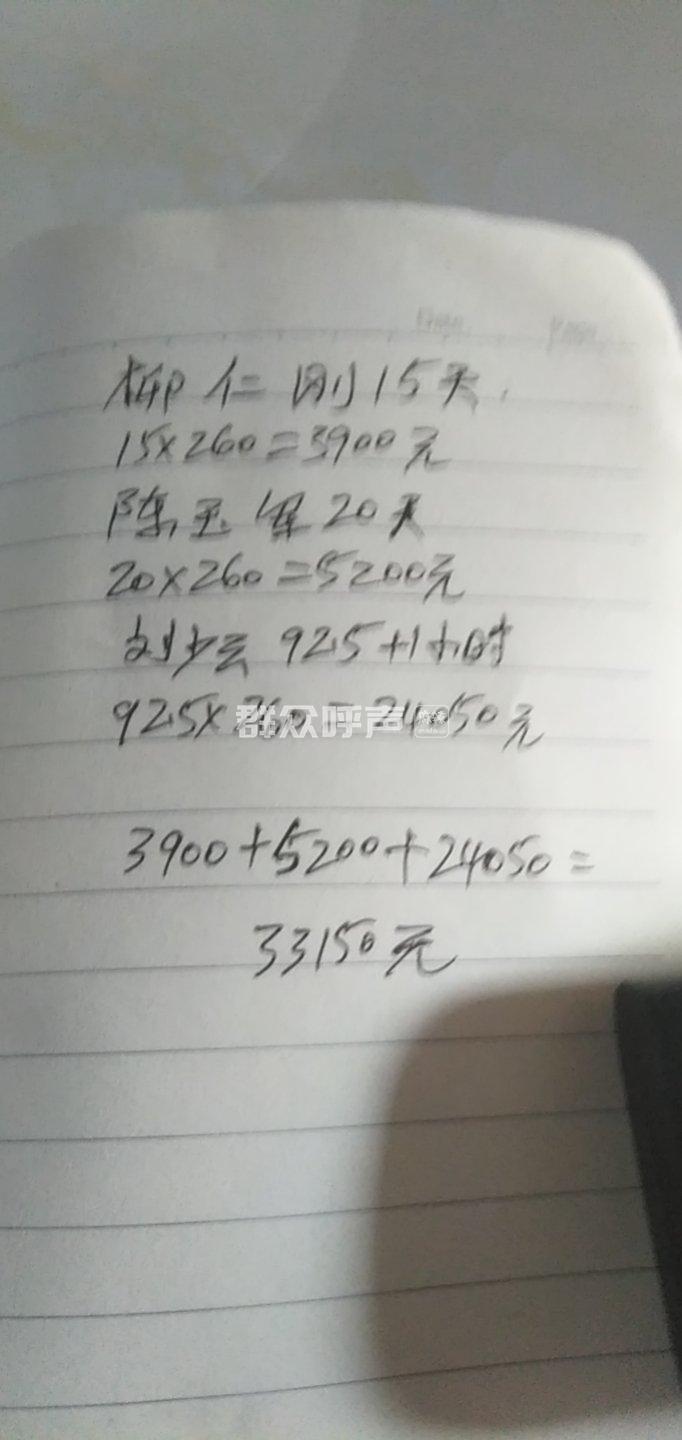 柳仁刚15天.
15×260=3900元
陈玉军20天
20×260=5200元
刘少云 92.5+1小时
92.5×260=24050元
群众呼声
3900+5200+24050=
33150元